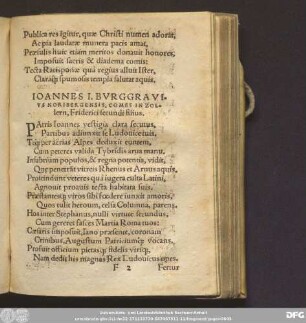 Publica res igitur, quæ Christi numen adorat,
Ac pia laudatæ munera pacis amat,
Præsidis huic etiam meritos donauit honores,
Imposuit sacris & diadema comis:
Tecta Ratisponæ quà regius alluit Ister,
Claraq; spumosis templa salutat aquis.
IOANNES I. BVRGGRAVI,
VS NORIBERGENSIS, COMES IN ZOL-
lern, Friderici secundi filius.
PAtris Ioannes vestigia clara secutus,
Partibus adiunxit se Ludouice tuis,
Teq; per aërias Alpes deduxit euntem,
Cum peteres valida Tybridis arua manu.
Insubrium populos, & regna potentia, vidit,
Quæ penetrat vitreis Rhenus et Arnus aquis,
Proscindunt veteres quà iugera culta Latini,
Agnouit pronuis tecta habitata suis.
Præstantesq; viros sibi foedere iunxit amoris,
Quos tulit heroum, celsa Columna, parens,
Hos inter Stephanus, nulli virtute secundus,
Cum gereret fasces Martia Roma tuos:
Cæsaris imposuit, Iano præsente, coronam
Crinibus, Augustum Patriæumq; vocans,
Profuit officium pietasq; fidelis vtriq;,
Nam dedit his magnas Rex Ludouicus opes.
F 2 Fertur